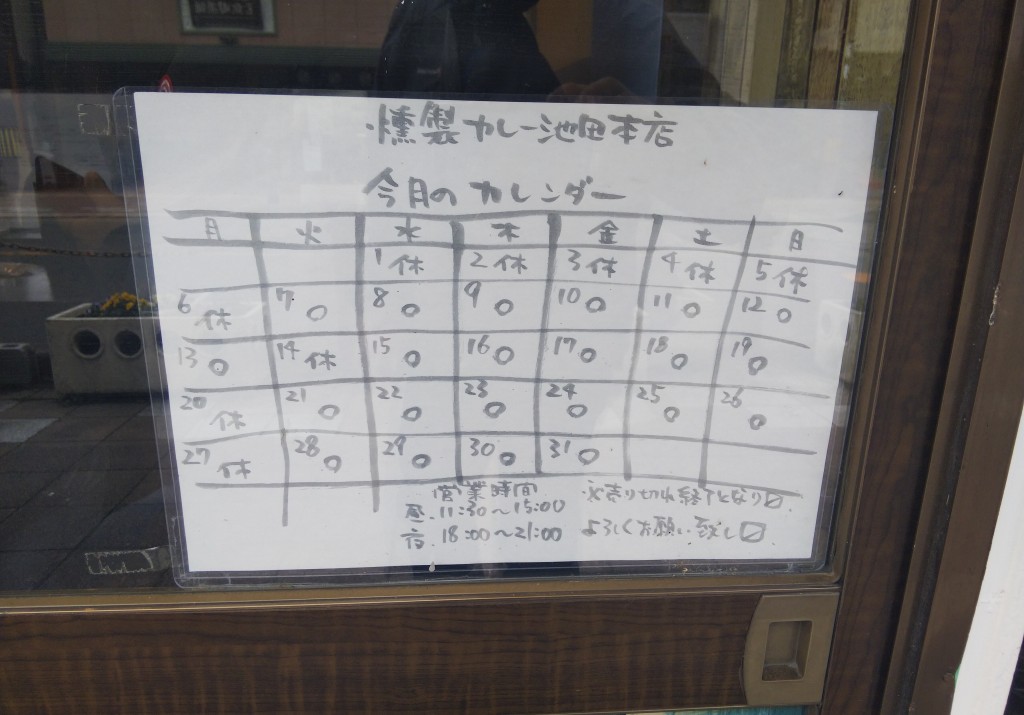 燻製カレー池田本店
今月のカレンダー
月 火 水 木 金 土 日
1休 2休 3休 4休 5休
6休 7○ 8○ 9○ 10○ 11○ 12○
13○ 14休 15○ 16○ 17○ 18○ 19○
20休 21○ 22○ 23○ 24○ 25○ 26○
27休 28○ 29○ 30○ 31○
営業時間
昼.11:30〜15:00
夜.18:00〜21:00
※売り切れ終了となり〼.
よろしくお願い致し〼.